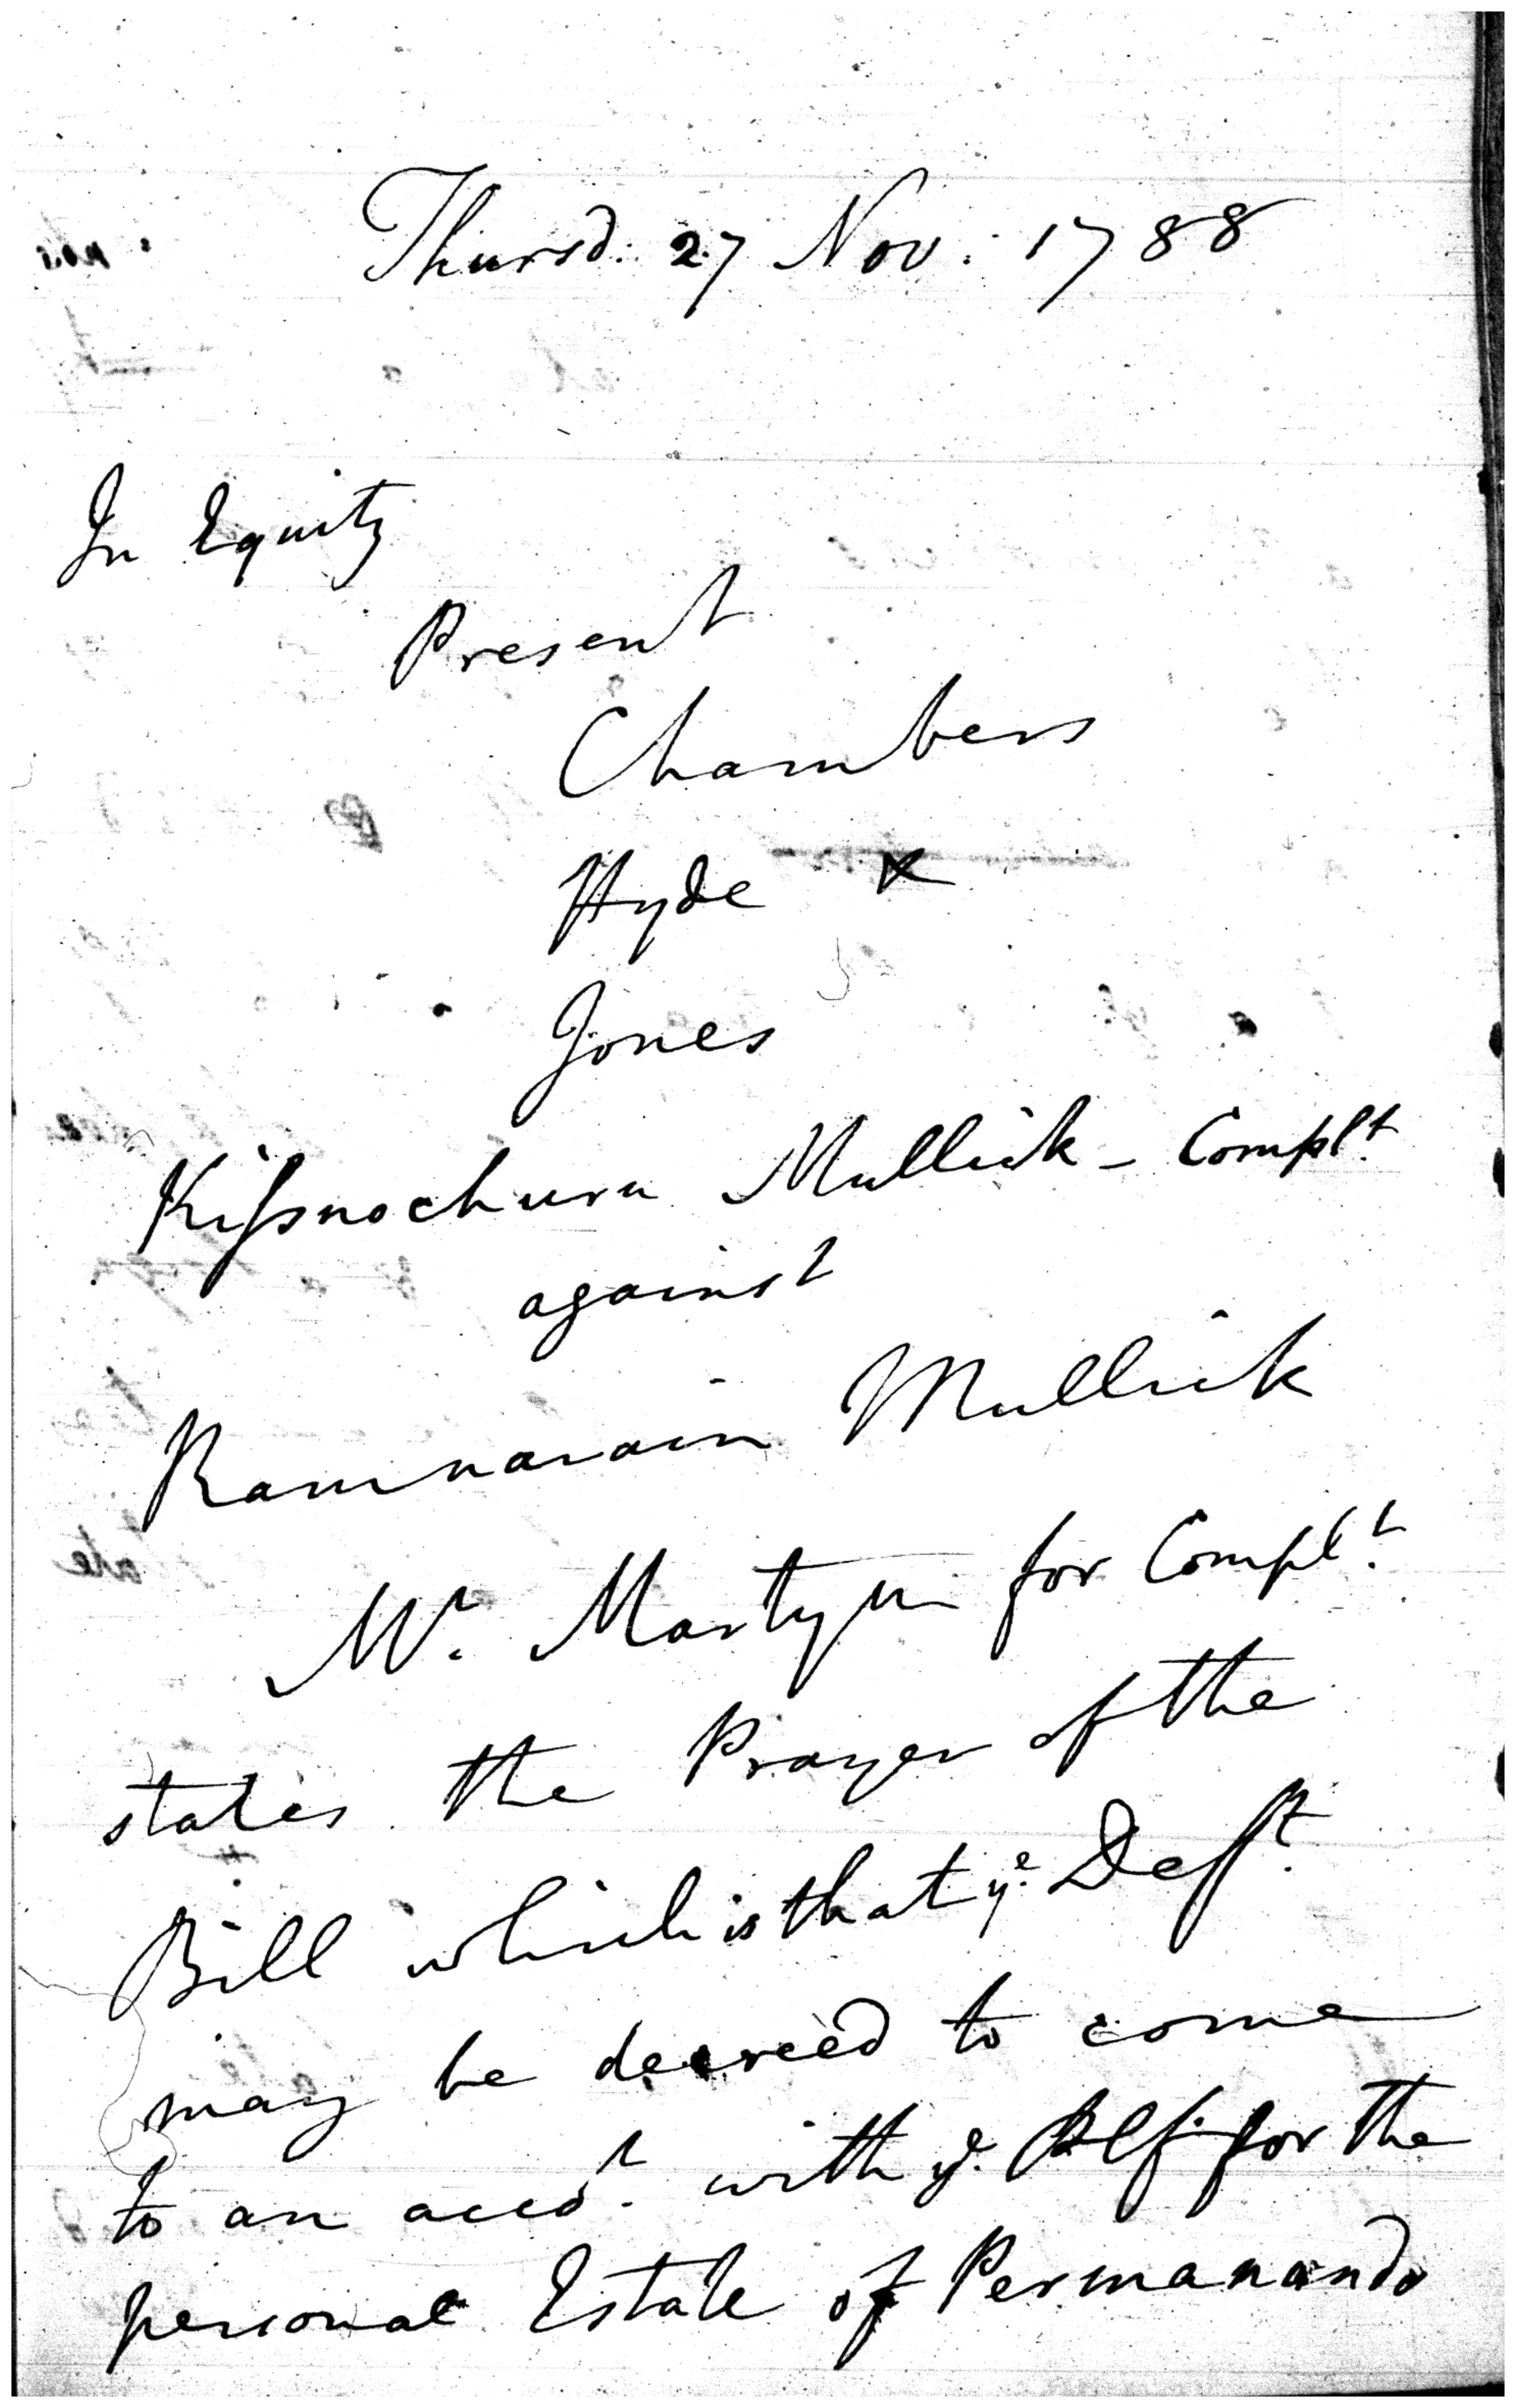 Thursd: 27 Nov: 1788
In Equity
Present
Chambers
Hyde x
Jones
Kissnochurn Mullick - Complt.
against
Ramnarain Mullick
Mr. Martyn for Complt.
states the Prayer of the
Bill which is that ye. Deft.
may be decreed to come
to an acco.t with ye. Plf. for the
personal Estate of Permanando